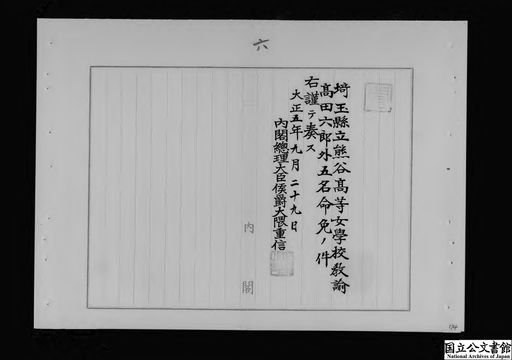 六
埼玉縣立熊谷高等女學校教諭
高田六郎外五名命免ノ件
右謹テ奏ス
大正五年九月二十九日
內閣總理大臣侯爵大隈重信
内閣
国立公文書館
National Archives of Japan